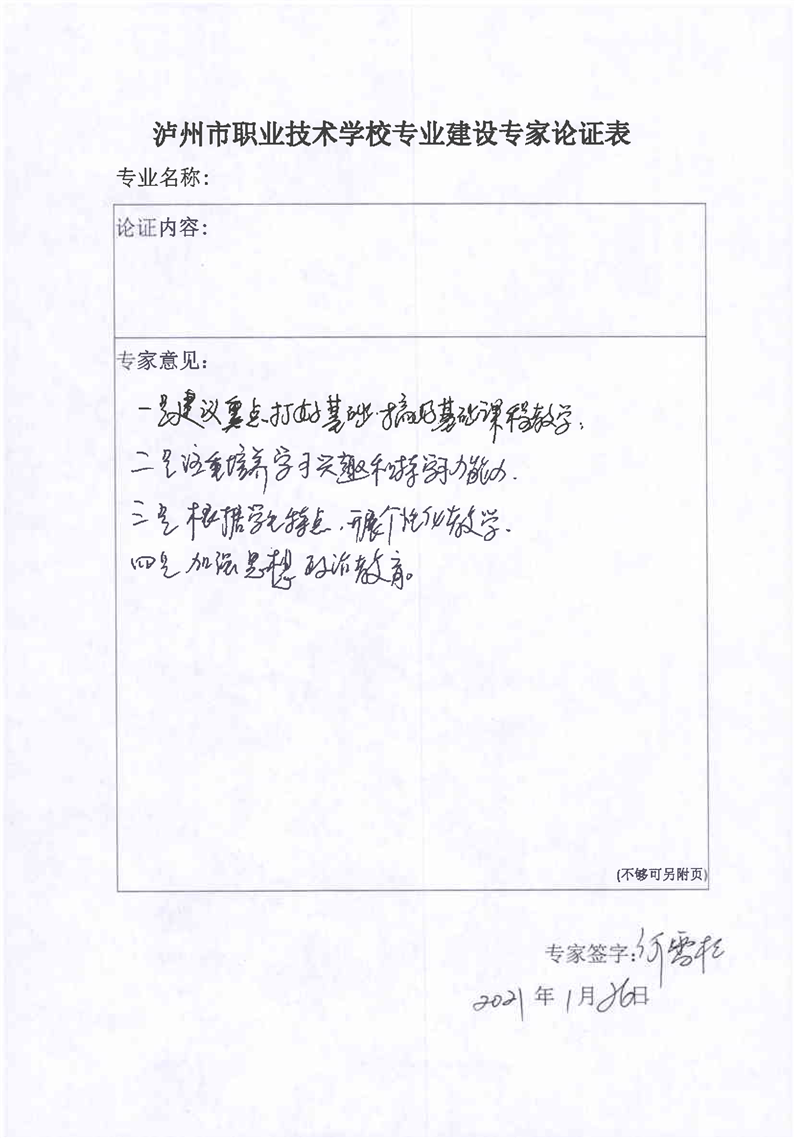 泸州市职业技术学校专业建设专家论证表
专业名称：
论证内容：
专家意见：
一是建议重点打好基础，搞好基础课程教学；
二是注重培养学习兴趣和学习能力．
三是根据学生特点，开展个性化教学．
四是加强思想政治教育。
(不够可另附页)
专家签字：何雪松
2021年1月26日